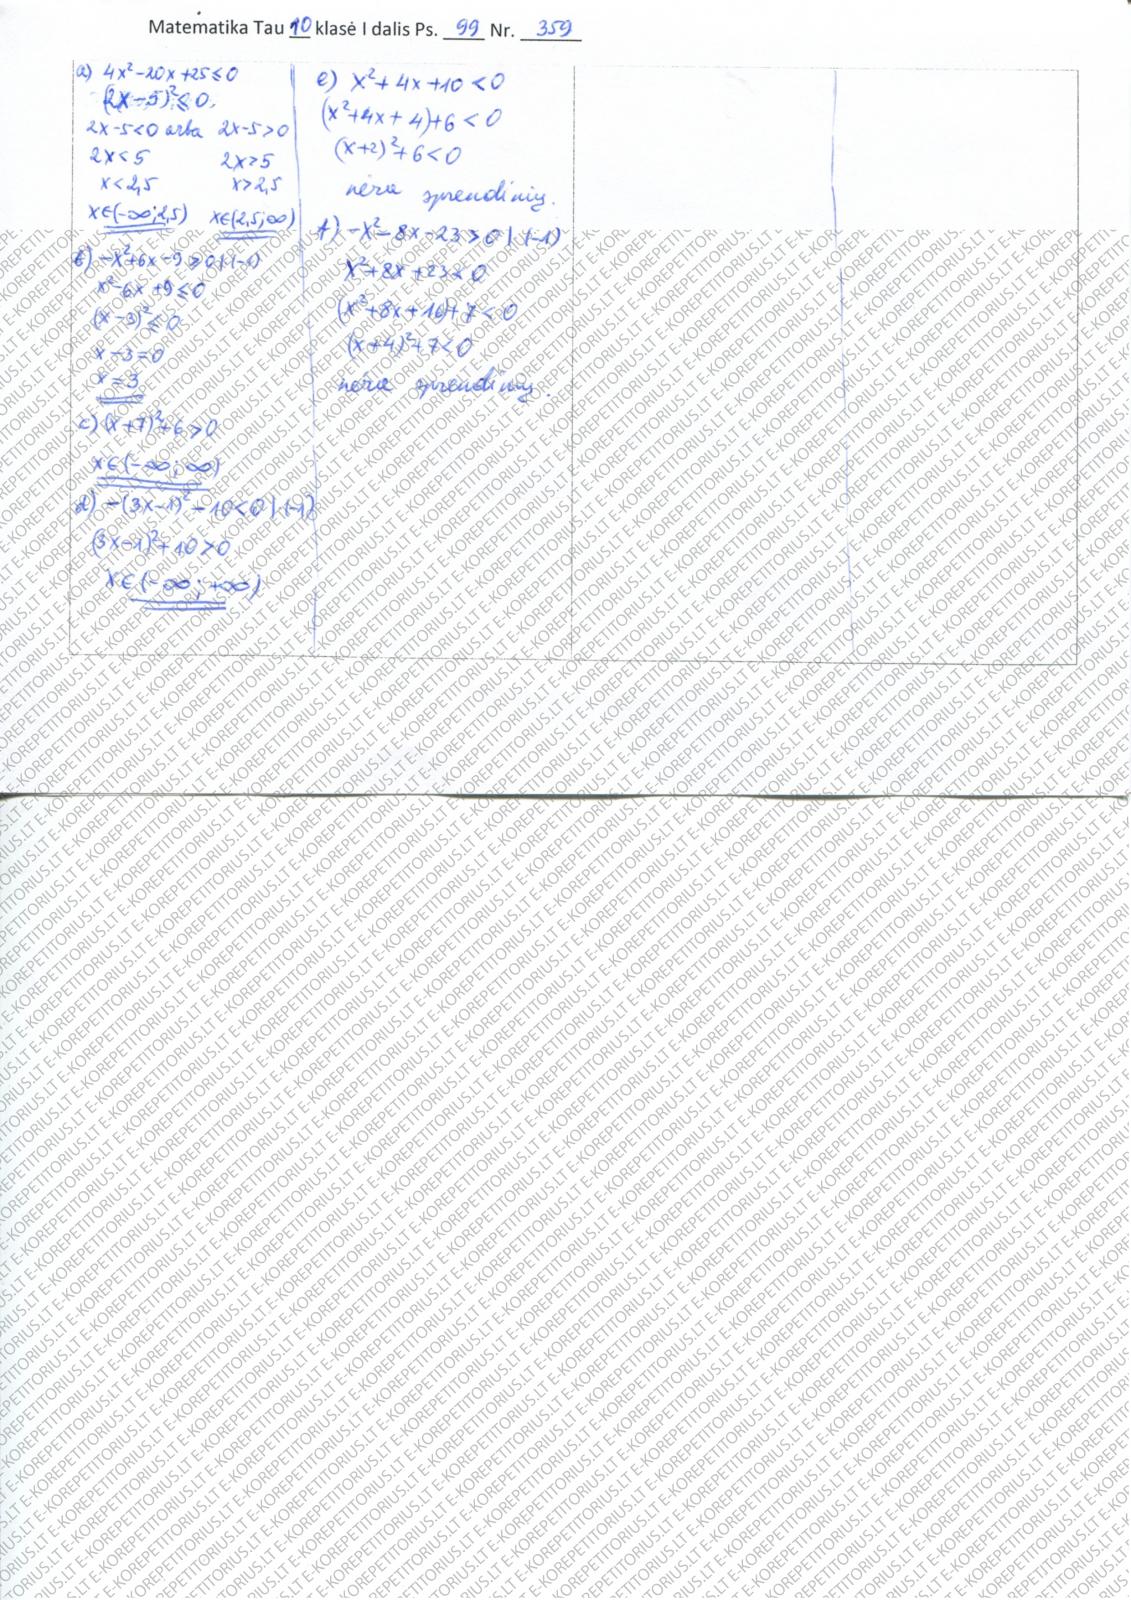 Matematika Tau 10 klasė I dalis Ps. 99 Nr. 359
a) 4x²-20x+25≤0
(2x-5)²≤0.
2x-5<0 arba 2x-5>0
2x<5 2x>5
x<2,5 x>2,5
x∈(-∞;2,5) x∈(2,5;∞)
b) -x²+6x-9≥0 |·(-1)
x²-6x+9≤0
(x-3)²≤0
x-3=0
x=3
c) (x+7)²+6>0
x∈(-∞;∞)
d) -(3x-1)²-10<0 |·(-1)
(3x-1)²+10>0
x∈(-∞;+∞)
e) x²+4x+10<0
(x²+4x+4)+6<0
(x+2)²+6<0
nėra sprendinių.
f) -x²-8x-23>0 |·(-1)
x²+8x+23<0
(x²+8x+16)+7<0
(x+4)²+7<0
nėra sprendinių.
E-KOREPETITORIUS.LT